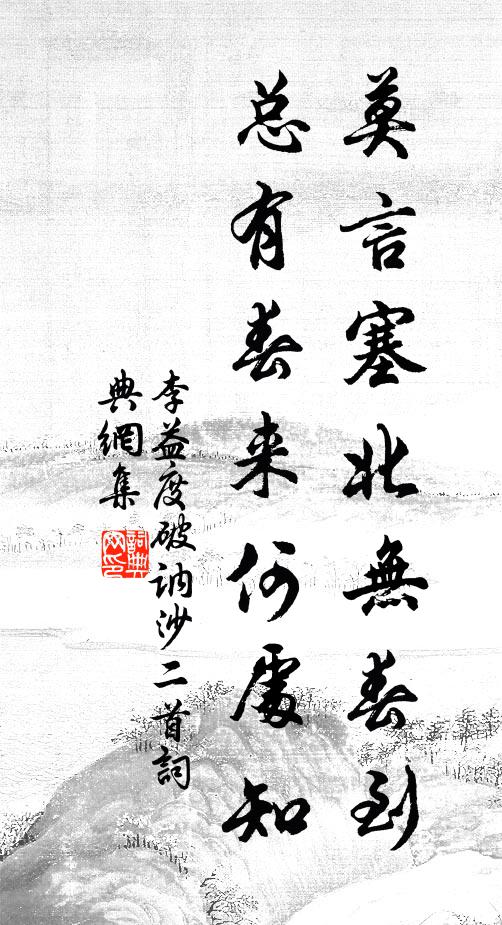 莫言塞北無春到
总有春来何處知
李益度破讷沙二首詞
典網集
詞典网印